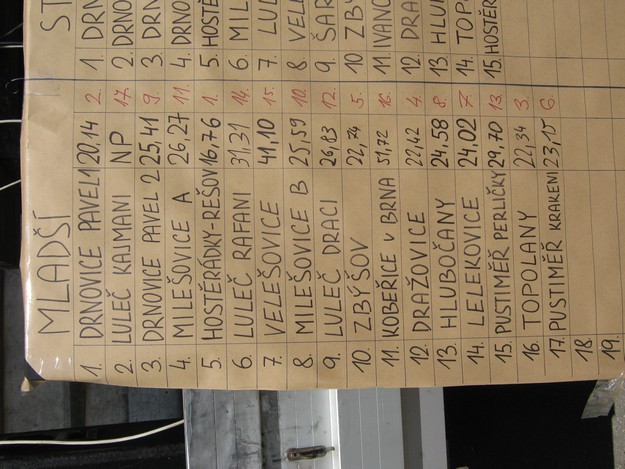 MLADŠÍ
1. DRNOVICE PAVEL 1 20,14 2.
2. LULEČ KAJMANI NP 17.
3. DRNOVICE PAVEL 2 25,41 9.
4. MILEŠOVICE A 26,27 11.
5. HOSTĚRÁDKY-REŠOV 16,76 1.
6. LULEČ RAFANI 31,31 14.
7. VELEŠOVICE 41,10 15.
8. MILEŠOVICE B 25,59 10.
9. LULEČ DRACI 26,83 12.
10. ZBÝŠOV 22,74 5.
11. KOBEŘICE V BRNA 51,72 16.
12. DRAŽOVICE 22,42 4.
13. HLUBOČANY 24,58 8.
14. LELEKOVICE 24,02 7.
15. PUSTIMĚŘ PERLIČKY 29,70 13.
16. TOPOLANY 22,34 3.
17. PUSTIMĚŘ KRAKENI 23,15 6.
18.
19.
ST
1. DRN
2. DRNO
3. DRN
4. DRNO
5. HOSTĚ
6. MIL
7. LUL
8. VEL
9. ŠAR
10 ZBÝ
11 IVANO
12. DRA
13. HLU
14. TOP
15. HOSTĚR